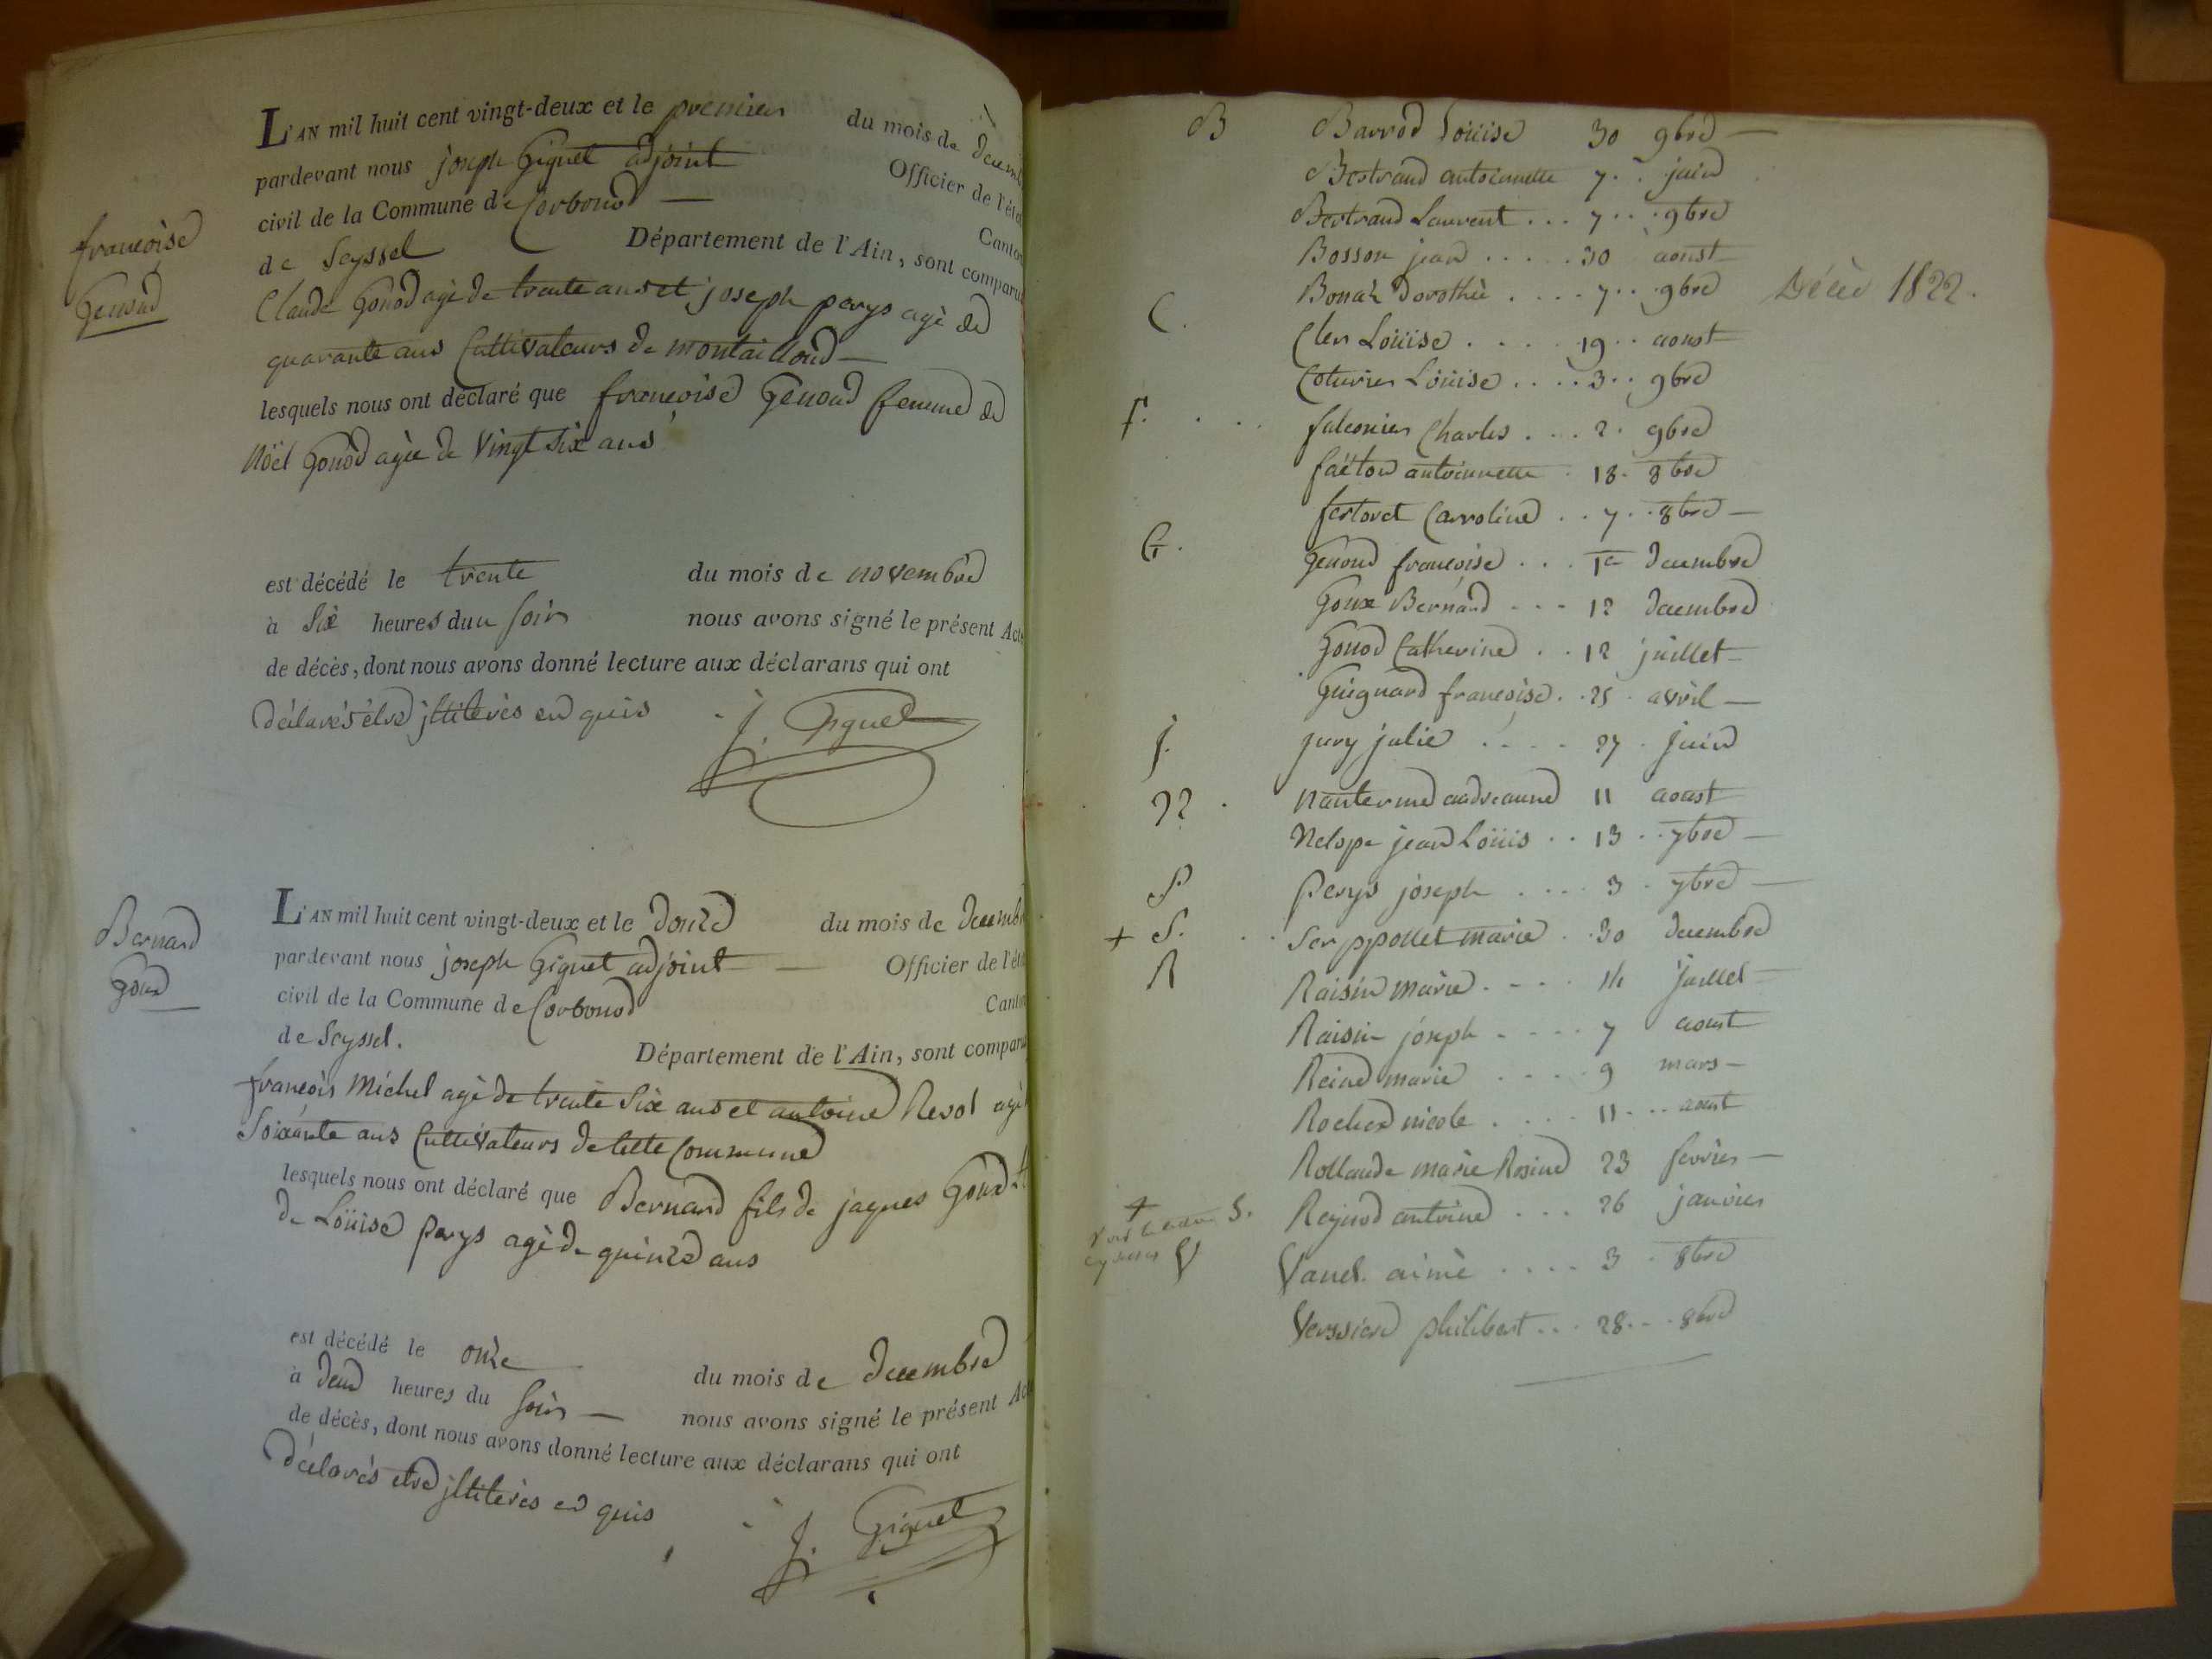 L'AN mil huit cent vingt-deux et le premier du mois de Decemb
pardevant nous joseph Giguet adjoint Officier de l'éta
civil de la Commune de Corbonod — Canton
de Seyssel Département de l'Ain, sont comparus
françoise
Genoud
Claude Gonod agè de trente ans et joseph perys agè de
quarante ans Cultivateurs de montailloud —
lesquels nous ont déclaré que françoise Genoud femme de
Noël Gonod agèe de Vingt Six ans
est décédé le trente du mois de novembre
à Six heures du soir nous avons signé le présent Acte
de décès, dont nous avons donné lecture aux déclarans qui ont
déclarés être jlliterès en quis
J. Giguet
Bernard
Goux
L'AN mil huit cent vingt-deux et le douze du mois de Decemb
pardevant nous joseph Giguet adjoint — Officier de l'éta
civil de la Commune de Corbonod Canton
de Seyssel. Département de l'Ain, sont comparus
françois Michel agè de trente Six ans et antoine Revol agè
Soixante ans Cultivateurs de Cette Commune
lesquels nous ont déclaré que Bernard fils de jaques Goux et
de Loüise perys agè de quinze ans
est décédé le onze du mois de decembre
à deux heures du Soir — nous avons signé le présent Act
de décès, dont nous avons donné lecture aux déclarans qui ont
déclarés etre jlliterès en quis
J. Giguet
B Barrod Loüise 30 9bre —
Bertrand antoinette 7 . . juin
Bertrand Laurent . . . 7 . . . 9bre
Bosson jean . . . . . 30 aoust
Bonaz Dorothèe . . . . 7 . . 9bre Décès 1822.
C. Cler Loüise . . . . 19 . . aoust
Coturier Loüise . . . . 3 . . 9bre
f. . . . falconier Charles . . . 2 . 9bre
faëton antoinnette . 18 . 8bre
fertoret Carroline . . 7 . . 8bre —
G. Genoud françoise . . . 1er decembre
Goux Bernard - - - 12 decembre
Gonod Catherine . . 12 juillet
Guignard françoise . . 25 . avril —
j. jury julie . . . . 27 . juin
N . Nanterme andreanne 11 aoust
Nelope jean Loüis . . 13 . . 7bre —
P Perys joseph . . . . 3 . 7bre —
+ S. . . Serppollet marie . . 30 decembre
R Raisin marie . - - . 14 juillet —
Raisin joseph - - - - 7 aoust
Reine marie . . . . 9 mars —
Rocher nicole . . . . 11 . . . aoust
Rollande marie Rosine 23 fevrier —
+
S. Reynod antoine . . . 26 janvier
V Vanel. aimè . . . . 3 . 8bre
Veyssiere philibert . . . 28 . . . 8bre